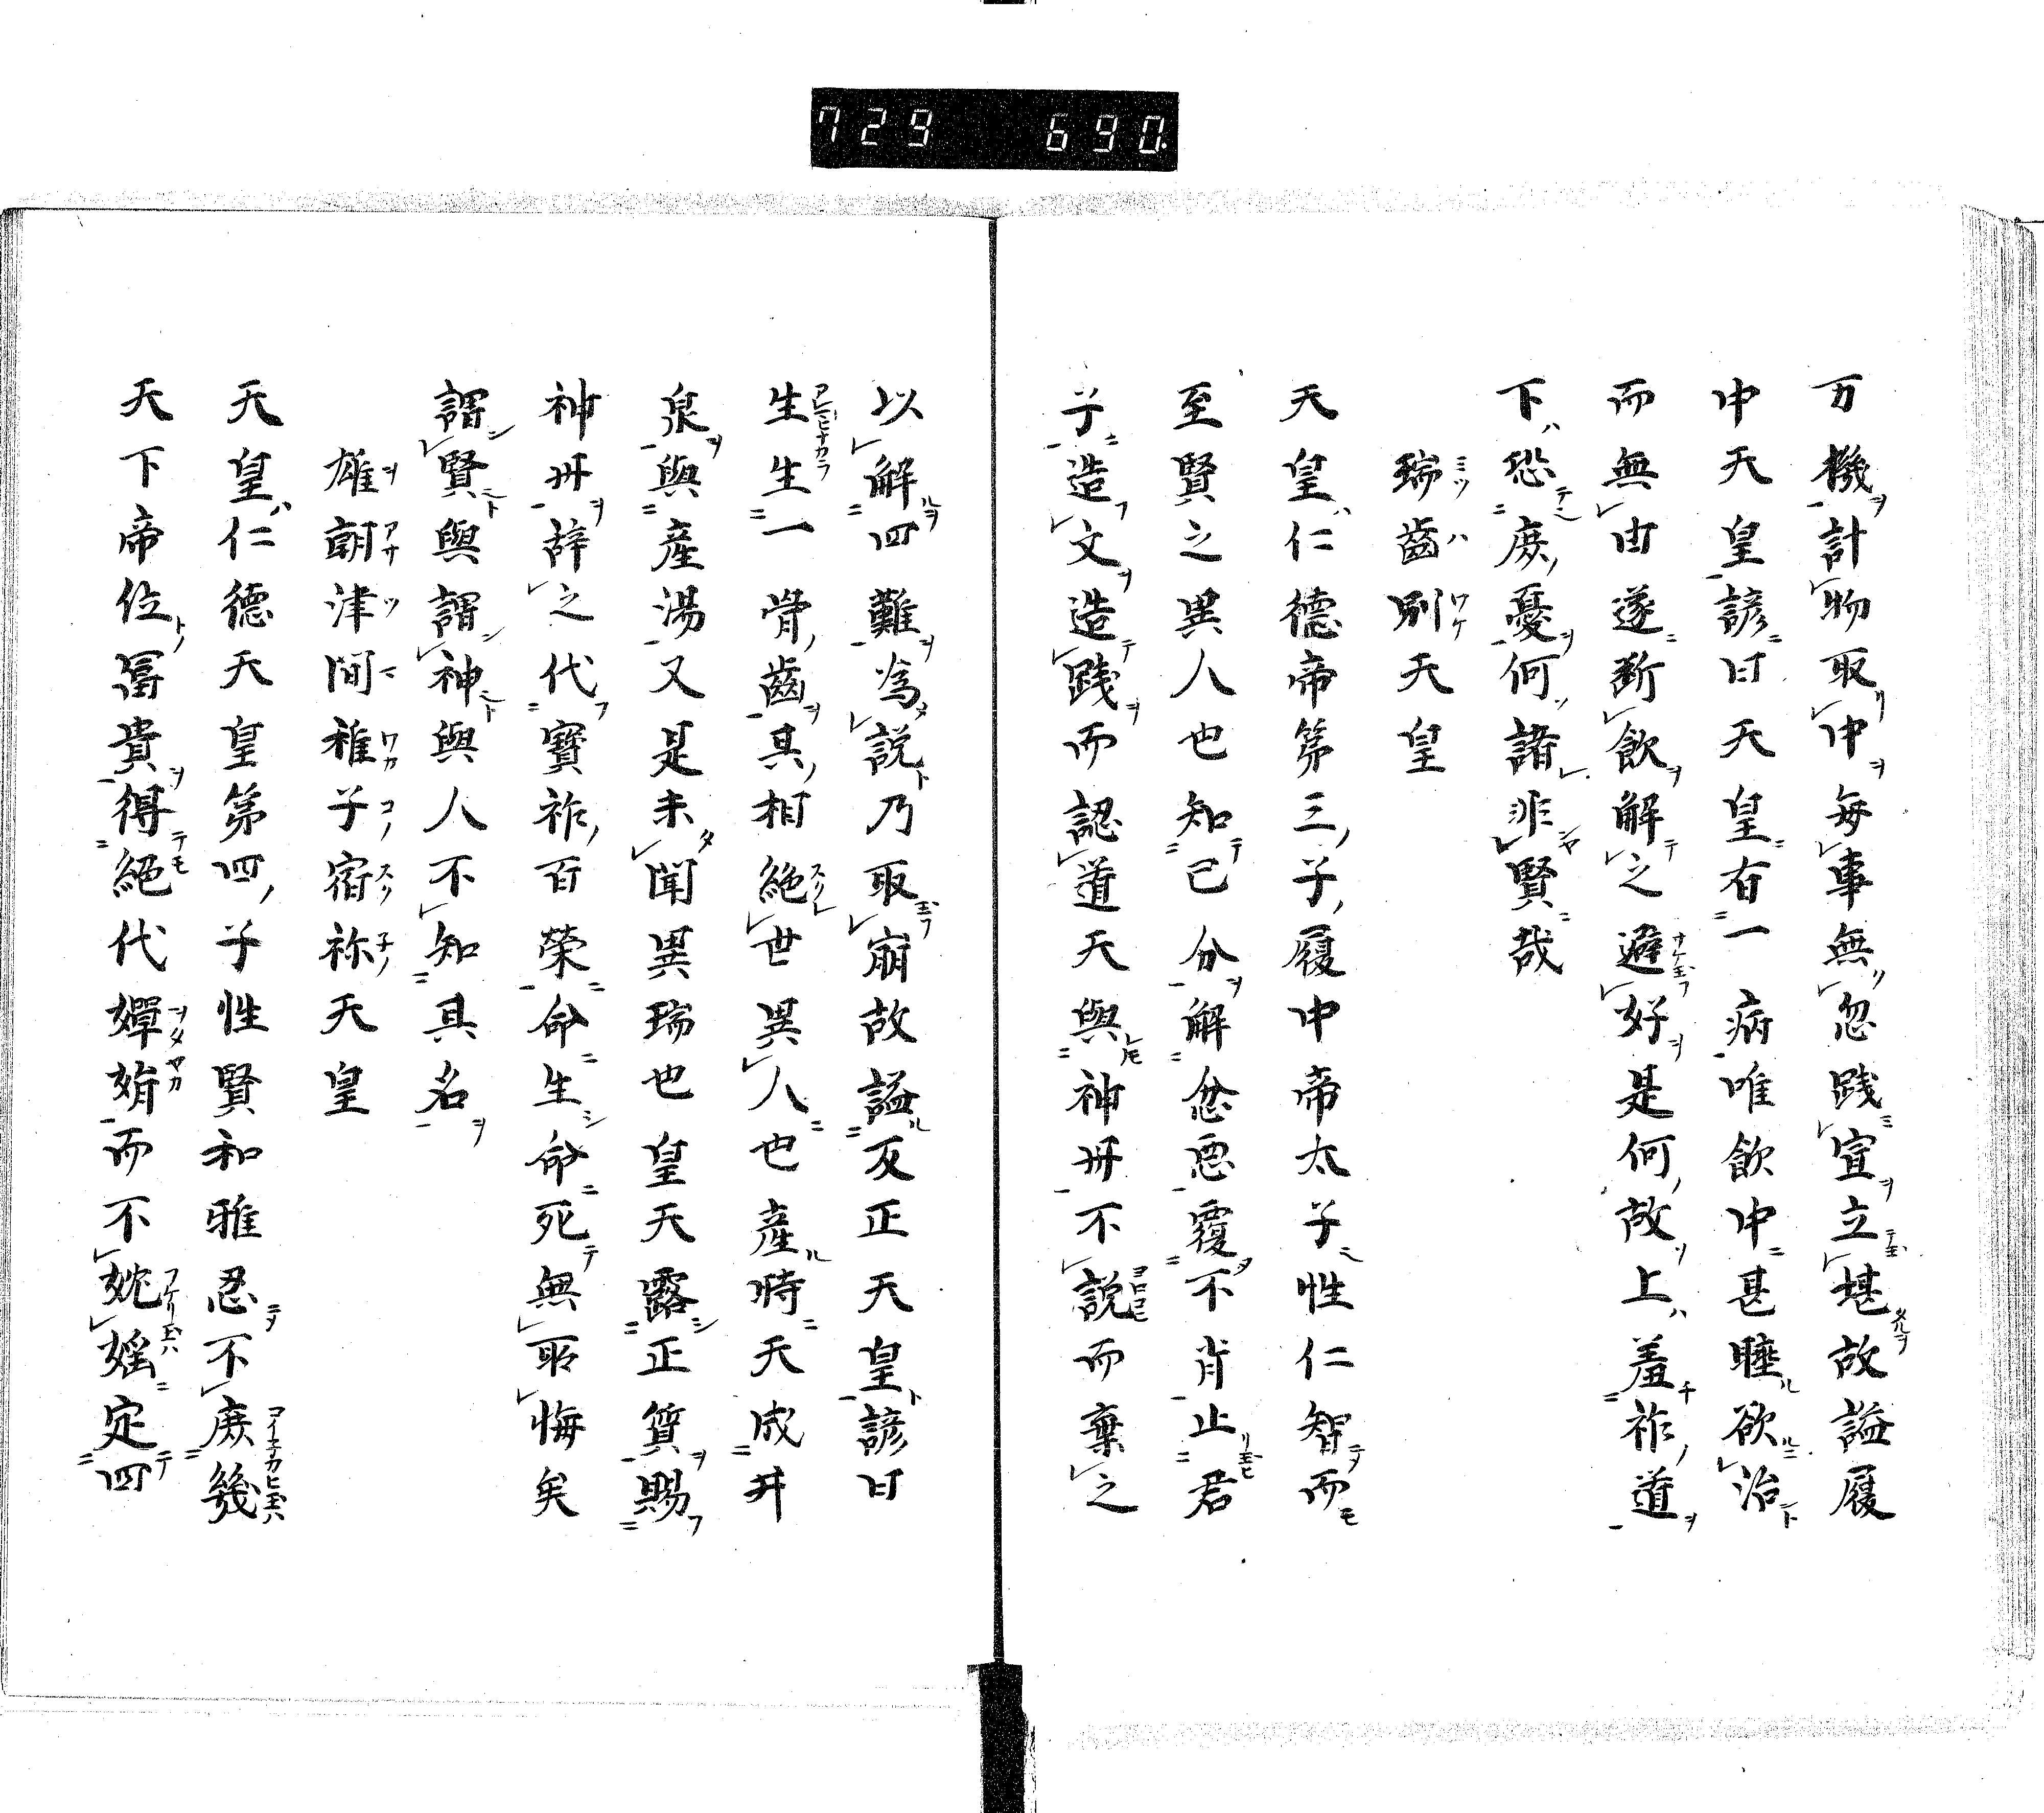 729 690.
万機計物取中毎事無忽践宣立堪故謚履
中天皇諺曰天皇有一病唯飲中甚睡欲治
而無由遂断飲解之避好是何故上羞祚道
下恐庶憂何諸非賢哉
瑞齒別天皇
天皇仁德帝第三子履中帝太子性仁智而
至賢之異人也知己分解忿惡覆不肖止君
子造文造践而認道天與神毋不説而棄之
以解四難為說乃取崩故謚反正天皇諺曰
生生一骨齒其相絶世異人也産時天成井
泉與産湯又是未聞異瑞也皇天露正質賜
神毋辞之代寶祚百榮命生命死無取悔矣
謂賢與謂神與人不知其名
雄朝津間稚子宿祢天皇
天皇仁德天皇第四子性賢和雅忍不庶幾
天下帝位冨貴得絕代嬋娟而不妉婬定四